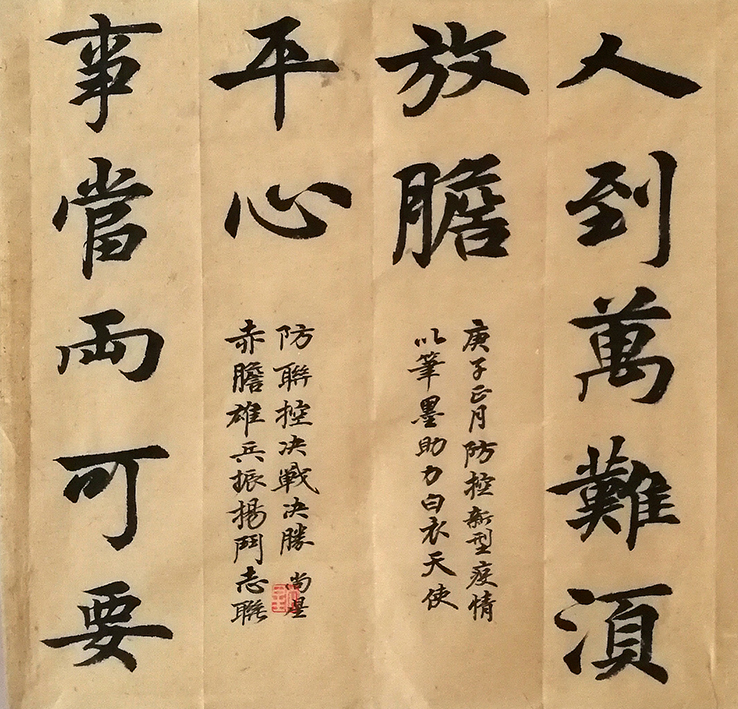 人到萬難湏
放膽
庚子正月防控新型疫情
以筆墨助力白衣天使
事當兩可要
平心
赤膽雄兵振揚鬥志聯
防聯控决戰决勝 尚星